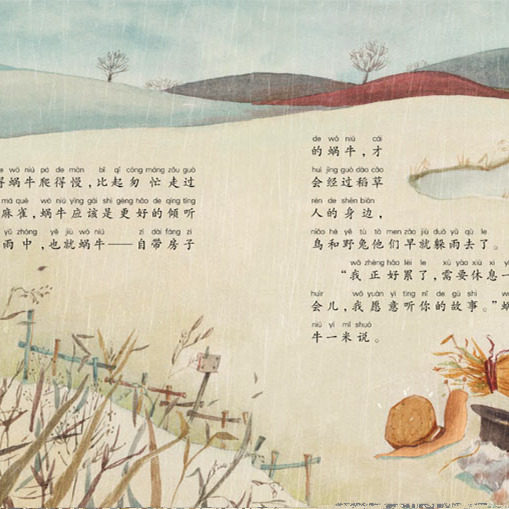 e wō niú pá de màn bǐ qǐ cōng máng zǒu guò
得蜗牛爬得慢，比起匆忙走过
má què wō niú yīng gāi shì gèng hǎo de qīng tīng
麻雀，蜗牛应该是更好的倾听
yǔ zhōng yě jiù wō niú zì dài fáng zi
雨中，也就蜗牛——自带房子
de wō niú cái
的蜗牛，才
huì jīng guò dào cǎo
会经过稻草
rén de shēn biān
人的身边，
niǎo hé yě tù tā men zǎo jiù duǒ yǔ qù le
鸟和野兔他们早就躲雨去了。
wǒ zhèng hǎo lèi le xū yào xiū xi yí
“我正好累了，需要休息一
huìr wǒ yuàn yì tīng nǐ de gù shi
会儿，我愿意听你的故事。”蜗
niú yì mǐ shuō
牛一米说。